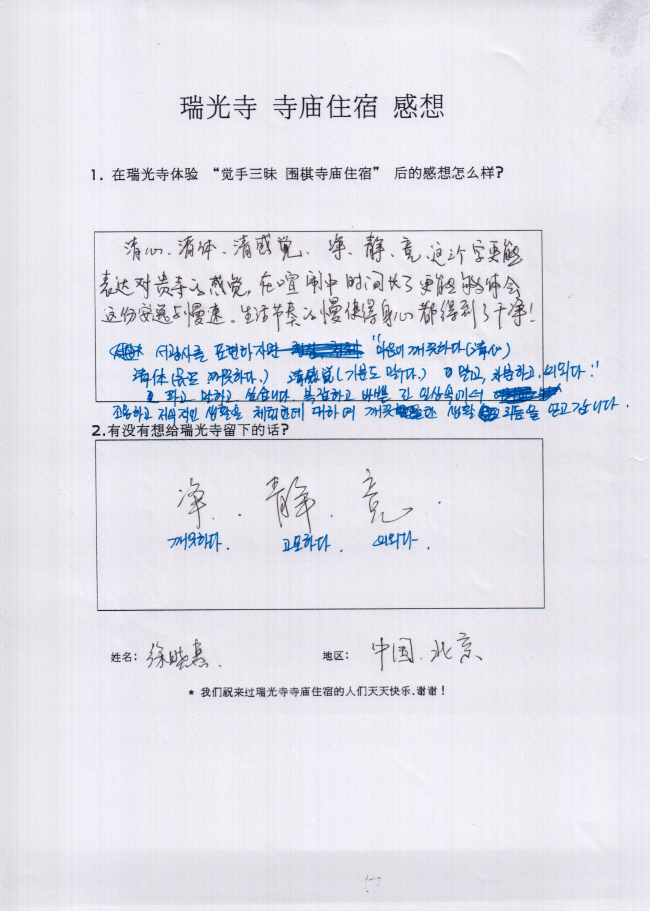 瑞光寺 寺庙住宿 感想
1. 在瑞光寺体验 “觉手三昧 围棋寺庙住宿” 后的感想怎么样?
清心、清体、清感觉、净、静、竟、这三个字更能
表达对贵寺的感觉，在喧闹中时间长了更能够体会
这份安逸与慢速。生活节奏的慢使得身心都得到了干净！
서광사를 표현하자면 "마음이 깨끗하다(清心)
清体(몸도 깨끗하다.) 清感觉(기분도 맑다.) 맑고, 차분하고, 의외다."
라고 말하고 싶습니다. 복잡하고 바쁜 긴 일상속에서
조용하고 생활을 깨끗한 생활 얻고갑니다.
2.有没有想给瑞光寺留下的话?
净. 静. 竟.
깨끗하다. 고요하다. 의외다.
姓名: 徐晓惠. 地区: 中国. 北京
* 我们祝来过瑞光寺寺庙住宿的人们天天快乐.谢谢!